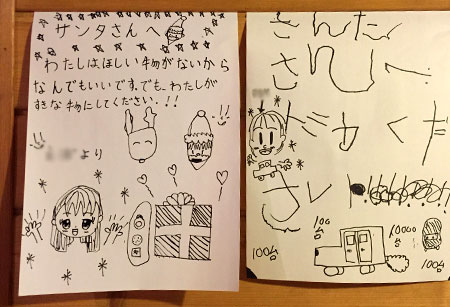 サンタさんへ
わたしはほしい物がないから
なんでもいいです。でも、わたしが
すきな物にしてください.!!
より
さんた
さんへ
ください
100台
10000台
100台
100台